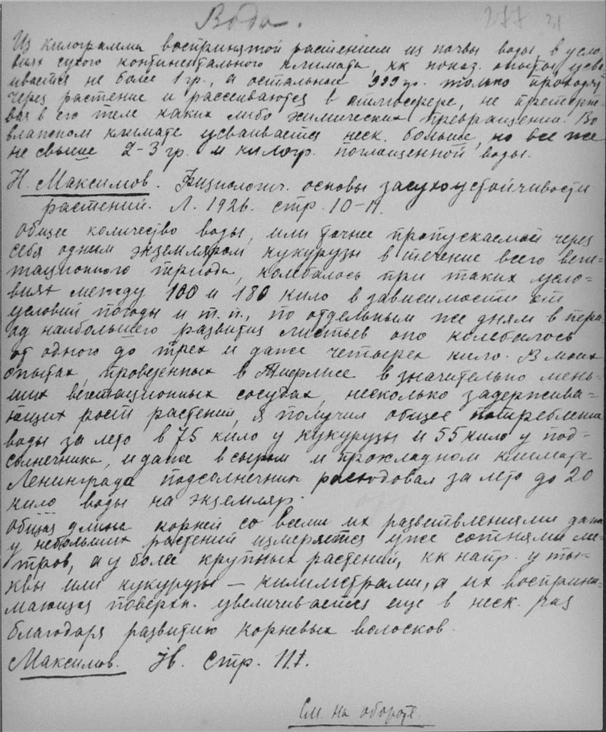 Вода. 277
Из килограмма воспринятой растением из почвы воды, в усло-
виях сухого континентального климата, кк показ. опыты, усва-
ивается не более 1 гр., а остальные 999 гр. только проходят
через растение и рассеиваются в атмосфере, не претерпе-
вая в его теле каких либо химических превращений. Во
влажном климате усваивается неск. больше, но все же
не свыше 2-3 гр. и килогр. поглощенной воды.
Н. Максимов. Физиологич. основы засухоустойчивости
растений. Л. 1926. стр. 10-11.
Общее количество воды, или точнее пропускаемой через
себя одним экземляром кукурузы в течение всего веге-
тационного периода, колебалось при таких усло-
виях между 100 и 180 кило в зависимости от
условий погоды и т.п., по отдельным же дням в пери-
од наибольшего развития листьев оно колебалось
от одного до трех и даже четырех кило. В моих
опытах, проведенных в Тифлисе в значительно мень-
ших вегетационных сосудах, несколько задержива-
ющих рост растений, я получил общее потребление
воды за лето в 75 кило у кукурузы и 55 кило у под-
солнечника, и даже в сыром и прохладном климате
Ленинграда подсолнечник расходовал за лето до 20
кило воды на экземляр.
Общая длина корней со всеми их разветвлениями даже
у небольших растений измеряется уже сотнями ме-
тров, а у более крупных растений, кк напр. у ты-
квы или кукурузы — километрами, а их восприни-
мающая поверхн. увеличивается еще в неск. раз
благодаря развитию корневых волосков.
Максимов. Iв. стр. 117.
См. на обороте.